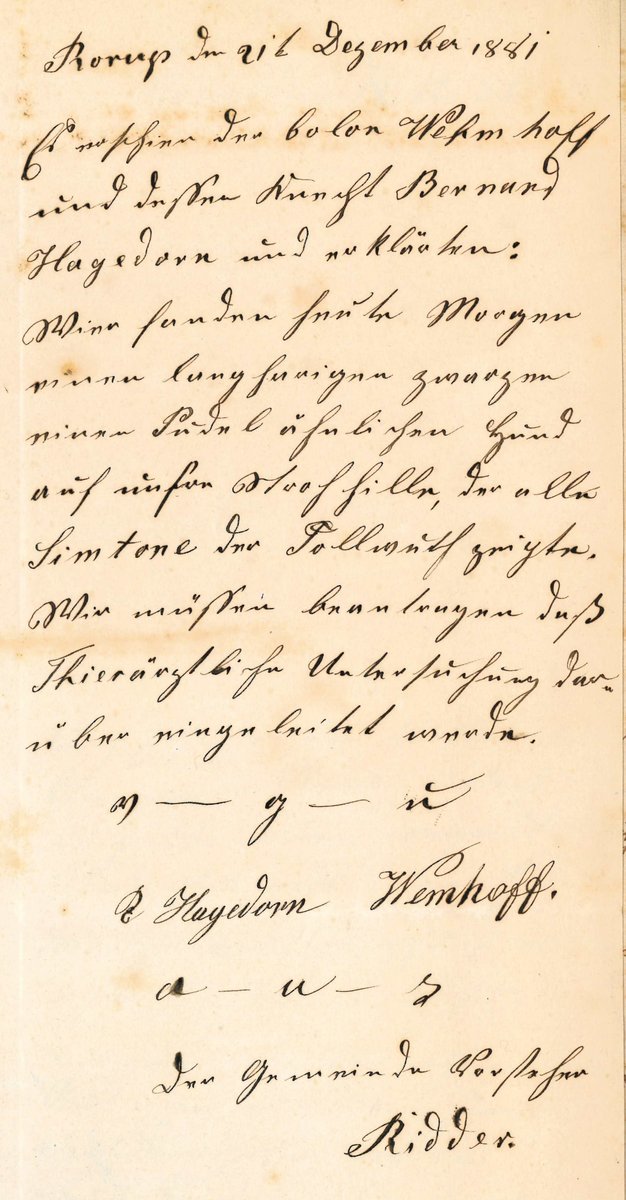 Rorup den 21t Dezember 1881
Es erschien der Colon Wehmhoff
und dessen Knecht Bernard
Hagedorn und erklärten:
Wier fanden heute Morgen
einen langharigen zwarzen
einen Pudel ähnlichen Hund
auf unsre Strohhille, der alle
Simtone der Tollwuth zeigte.
Wir müssen beantragen daß
Thierärztliche Untersuchung dar=
über eingeleitet werde.
v — g — u
B Hagedorn Wemhoff.
a — u — s
Der Gemeinde Vorsteher
Ridder.